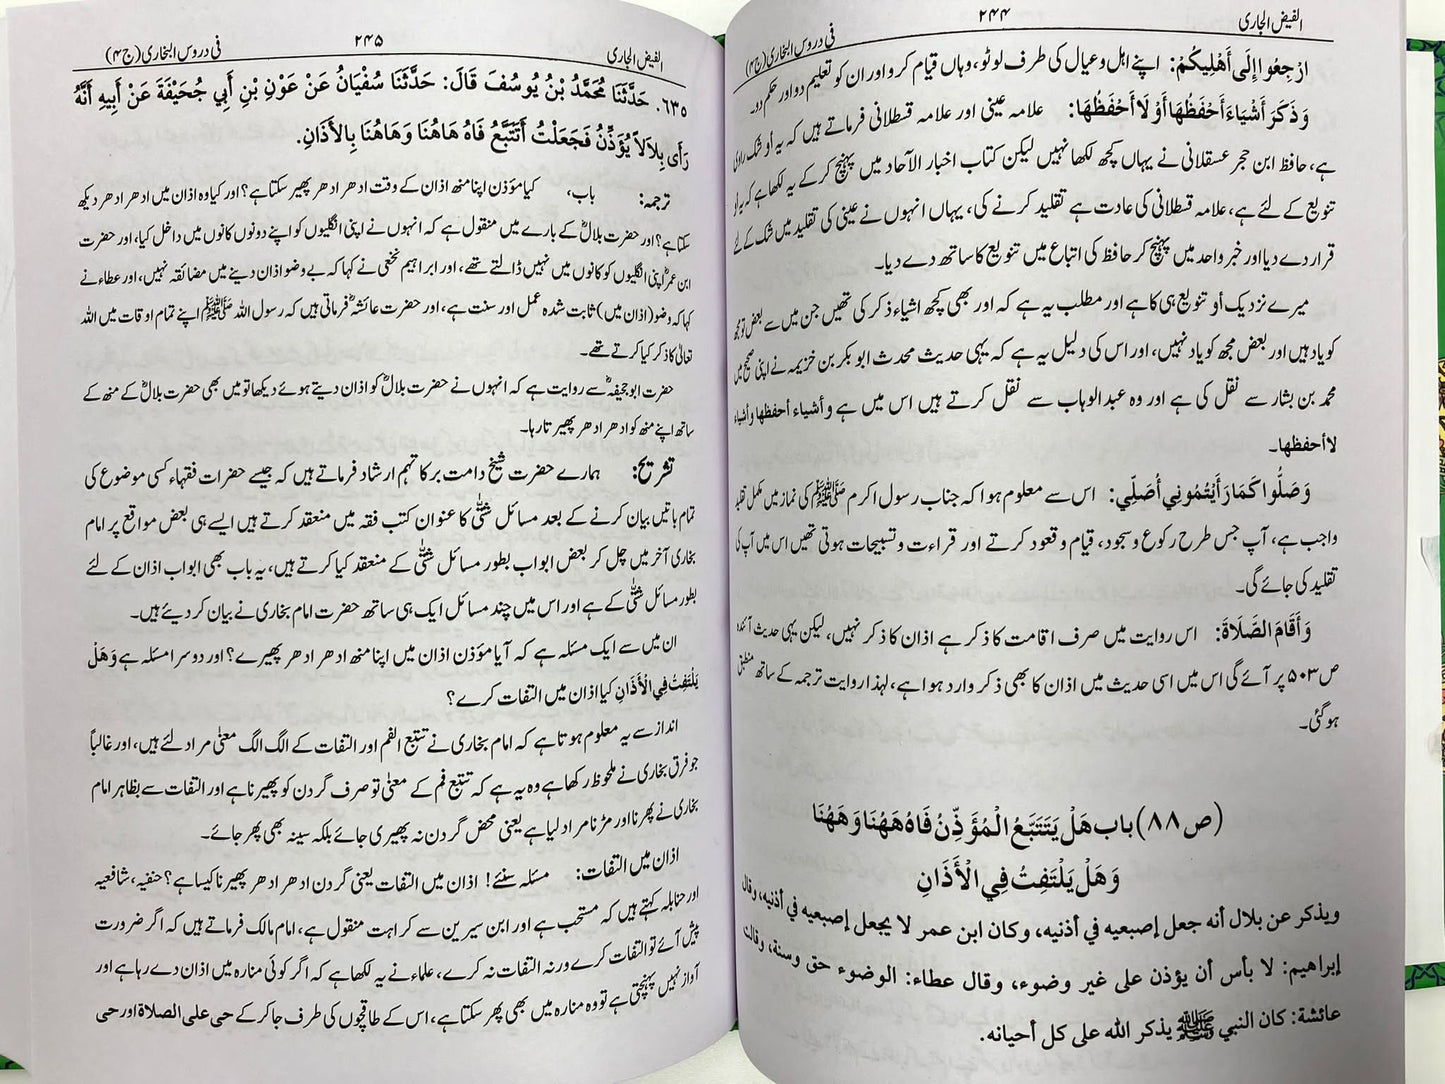 الفیض الجاری ۲۴۴ فی دروس البخاری (ج۴)
ارْجِعُوا إِلَى أَهْلِيكُمْ: اپنے اہل وعیال کی طرف لوٹو، وہاں قیام کرو اور ان کو تعلیم دو اور حکم دو۔
وَذَكَرَ أَشْيَاءَ أَحْفَظُهَا أَوْ لَا أَحْفَظُهَا: علامہ عینی اور علامہ قسطلانی فرماتے ہیں کہ یہ أو شک راوی
ہے، حافظ ابن حجر عسقلانی نے یہاں کچھ لکھا نہیں لیکن کتاب اخبار الآحاد میں پہنچ کر کے یہ لکھا ہے کہ یہ أو
تنویع کے لئے ہے، علامہ قسطلانی کی عادت ہے تقلید کرنے کی، یہاں انہوں نے عینی کی تقلید میں شک کے لئے
قرار دے دیا اور خبر واحد میں پہنچ کر حافظ کی اتباع میں تنویع کا ساتھ دے دیا۔
میرے نزدیک أو تنویع ہی کا ہے اور مطلب یہ ہے کہ اور بھی کچھ اشیاء ذکر کی تھیں جن میں سے بعض تو مجھ
کو یاد ہیں اور بعض مجھ کو یاد نہیں، اور اس کی دلیل یہ ہے کہ یہی حدیث محدث ابو بکر بن خزیمہ نے اپنی صحیح میں
محمد بن بشار سے نقل کی ہے اور وہ عبد الوہاب سے نقل کرتے ہیں اس میں ہے وأشياء أحفظها وأشياء
لا أحفظها۔
وَصَلُّوا كَمَا رَأَيْتُمُونِي أُصَلِّي: اس سے معلوم ہوا کہ جناب رسول اکرم ﷺ کی نماز میں مکمل تقلید
واجب ہے، آپ جس طرح رکوع و سجود، قیام و قعود کرتے اور قراءت و تسبیحات ہوتی تھیں اس میں آپ کی
تقلید کی جائے گی۔
وَأَقَامَ الصَّلَاةَ: اس روایت میں صرف اقامت کا ذکر ہے اذان کا ذکر نہیں، لیکن یہی حدیث آئندہ
ص ۵۰۳ پر آئے گی اس میں اسی حدیث میں اذان کا بھی ذکر وارد ہوا ہے، لہذا روایت ترجمہ کے ساتھ منطبق
ہو گئی۔
(ص ۸۸) باب هَلْ يَتَتَبَّعُ الْمُؤَذِّنُ فَاهُ هَهُنَا وَهَهُنَا
وَهَلْ يَلْتَفِتُ فِي الْأَذَانِ
ويذكر عن بلال أنه جعل إصبعيه في أذنيه، وكان ابن عمر لا يجعل إصبعيه في أذنيه، وقال
إبراهيم: لا بأس أن يؤذن على غير وضوء، وقال عطاء: الوضوء حق وسنة، وقالت
عائشة: كان النبي ﷺ يذكر الله على كل أحيانه.
الفیض الجاری ۲۴۵ فی دروس البخاری (ج۴)
۶۳۵. حَدَّثَنَا مُحَمَّدُ بْنُ يُوسُفَ قَالَ: حَدَّثَنَا سُفْيَانُ عَنْ عَوْنِ بْنِ أَبِي جُحَيْفَةَ عَنْ أَبِيهِ أَنَّهُ
رَأَى بِلَالاً يُؤَذِّنُ فَجَعَلْتُ أَتَتَبَّعُ فَاهُ هَاهُنَا وَهَاهُنَا بِالأَذَانِ.
ترجمہ: باب، کیا مؤذن اپنا منھ اذان کے وقت ادھر ادھر پھیر سکتا ہے؟ اور کیا وہ اذان میں ادھر ادھر دیکھ
سکتا ہے؟ اور حضرت بلالؓ کے بارے میں منقول ہے کہ انہوں نے اپنی انگلیوں کو اپنے دونوں کانوں میں داخل کیا، اور حضرت
ابن عمرؓ اپنی انگلیوں کو کانوں میں نہیں ڈالتے تھے، اور ابراہیم نخعی نے کہا کہ بے وضو اذان دینے میں مضائقہ نہیں، اور عطاء نے
کہا کہ وضو (اذان میں) ثابت شدہ عمل اور سنت ہے، اور حضرت عائشہؓ فرماتی ہیں کہ رسول اللہ ﷺ اپنے تمام اوقات میں اللہ
تعالیٰ کا ذکر کیا کرتے تھے۔
حضرت ابو جحیفہؓ سے روایت ہے کہ انہوں نے حضرت بلالؓ کو اذان دیتے ہوئے دیکھا تو میں بھی حضرت بلالؓ کے منھ کے
ساتھ اپنے منھ کو ادھر ادھر پھیرتا رہا۔
تشریح: ہمارے حضرت شیخ دامت برکاتہم ارشاد فرماتے ہیں کہ جیسے حضرات فقہاء کسی موضوع کی
تمام باتیں بیان کرنے کے بعد مسائل شتّٰی کا عنوان کتب فقہ میں منعقد کرتے ہیں ایسے ہی بعض مواقع پر امام
بخاری آخر میں چل کر بعض ابواب بطور مسائل شتّٰی کے منعقد کیا کرتے ہیں، یہ باب بھی ابواب اذان کے لئے
بطور مسائل شتّٰی کے ہے اور اس میں چند مسائل ایک ہی ساتھ حضرت امام بخاری نے بیان کر دیئے ہیں۔
ان میں سے ایک مسئلہ ہے کہ آیا مؤذن اذان میں اپنا منھ ادھر ادھر پھیرے؟ اور دوسرا مسئلہ ہے وَهَلْ
يَلْتَفِتُ فِي الْأَذَانِ کیا اذان میں التفات کرے؟
انداز سے یہ معلوم ہوتا ہے کہ امام بخاری نے تتبع الفم اور التفات کے الگ الگ معنیٰ مراد لئے ہیں، اور غالباً
جو فرق بخاری نے ملحوظ رکھا ہے وہ یہ ہے کہ تتبع فم کے معنیٰ تو صرف گردن کو پھیرنا ہے اور التفات سے بظاہر امام
بخاری نے پھرنا اور مڑنا مراد لیا ہے یعنی محض گردن نہ پھیری جائے بلکہ سینہ بھی پھر جائے۔
اذان میں التفات: مسئلہ سنئے! اذان میں التفات یعنی گردن ادھر ادھر پھیرنا کیسا ہے؟ حنفیہ، شافعیہ
اور حنابلہ کہتے ہیں کہ مستحب ہے اور ابن سیرین سے کراہت منقول ہے، امام مالک فرماتے ہیں کہ اگر ضرورت
پیش آئے تو التفات کرے ورنہ التفات نہ کرے، علماء نے یہ لکھا ہے کہ اگر کوئی منارہ میں اذان دے رہا ہے اور
آواز نہیں پہنچتی ہے تو وہ منارہ میں بھی پھر سکتا ہے، اس کے طاقچوں کی طرف جا کر کے حی علی الصلاة اور حی